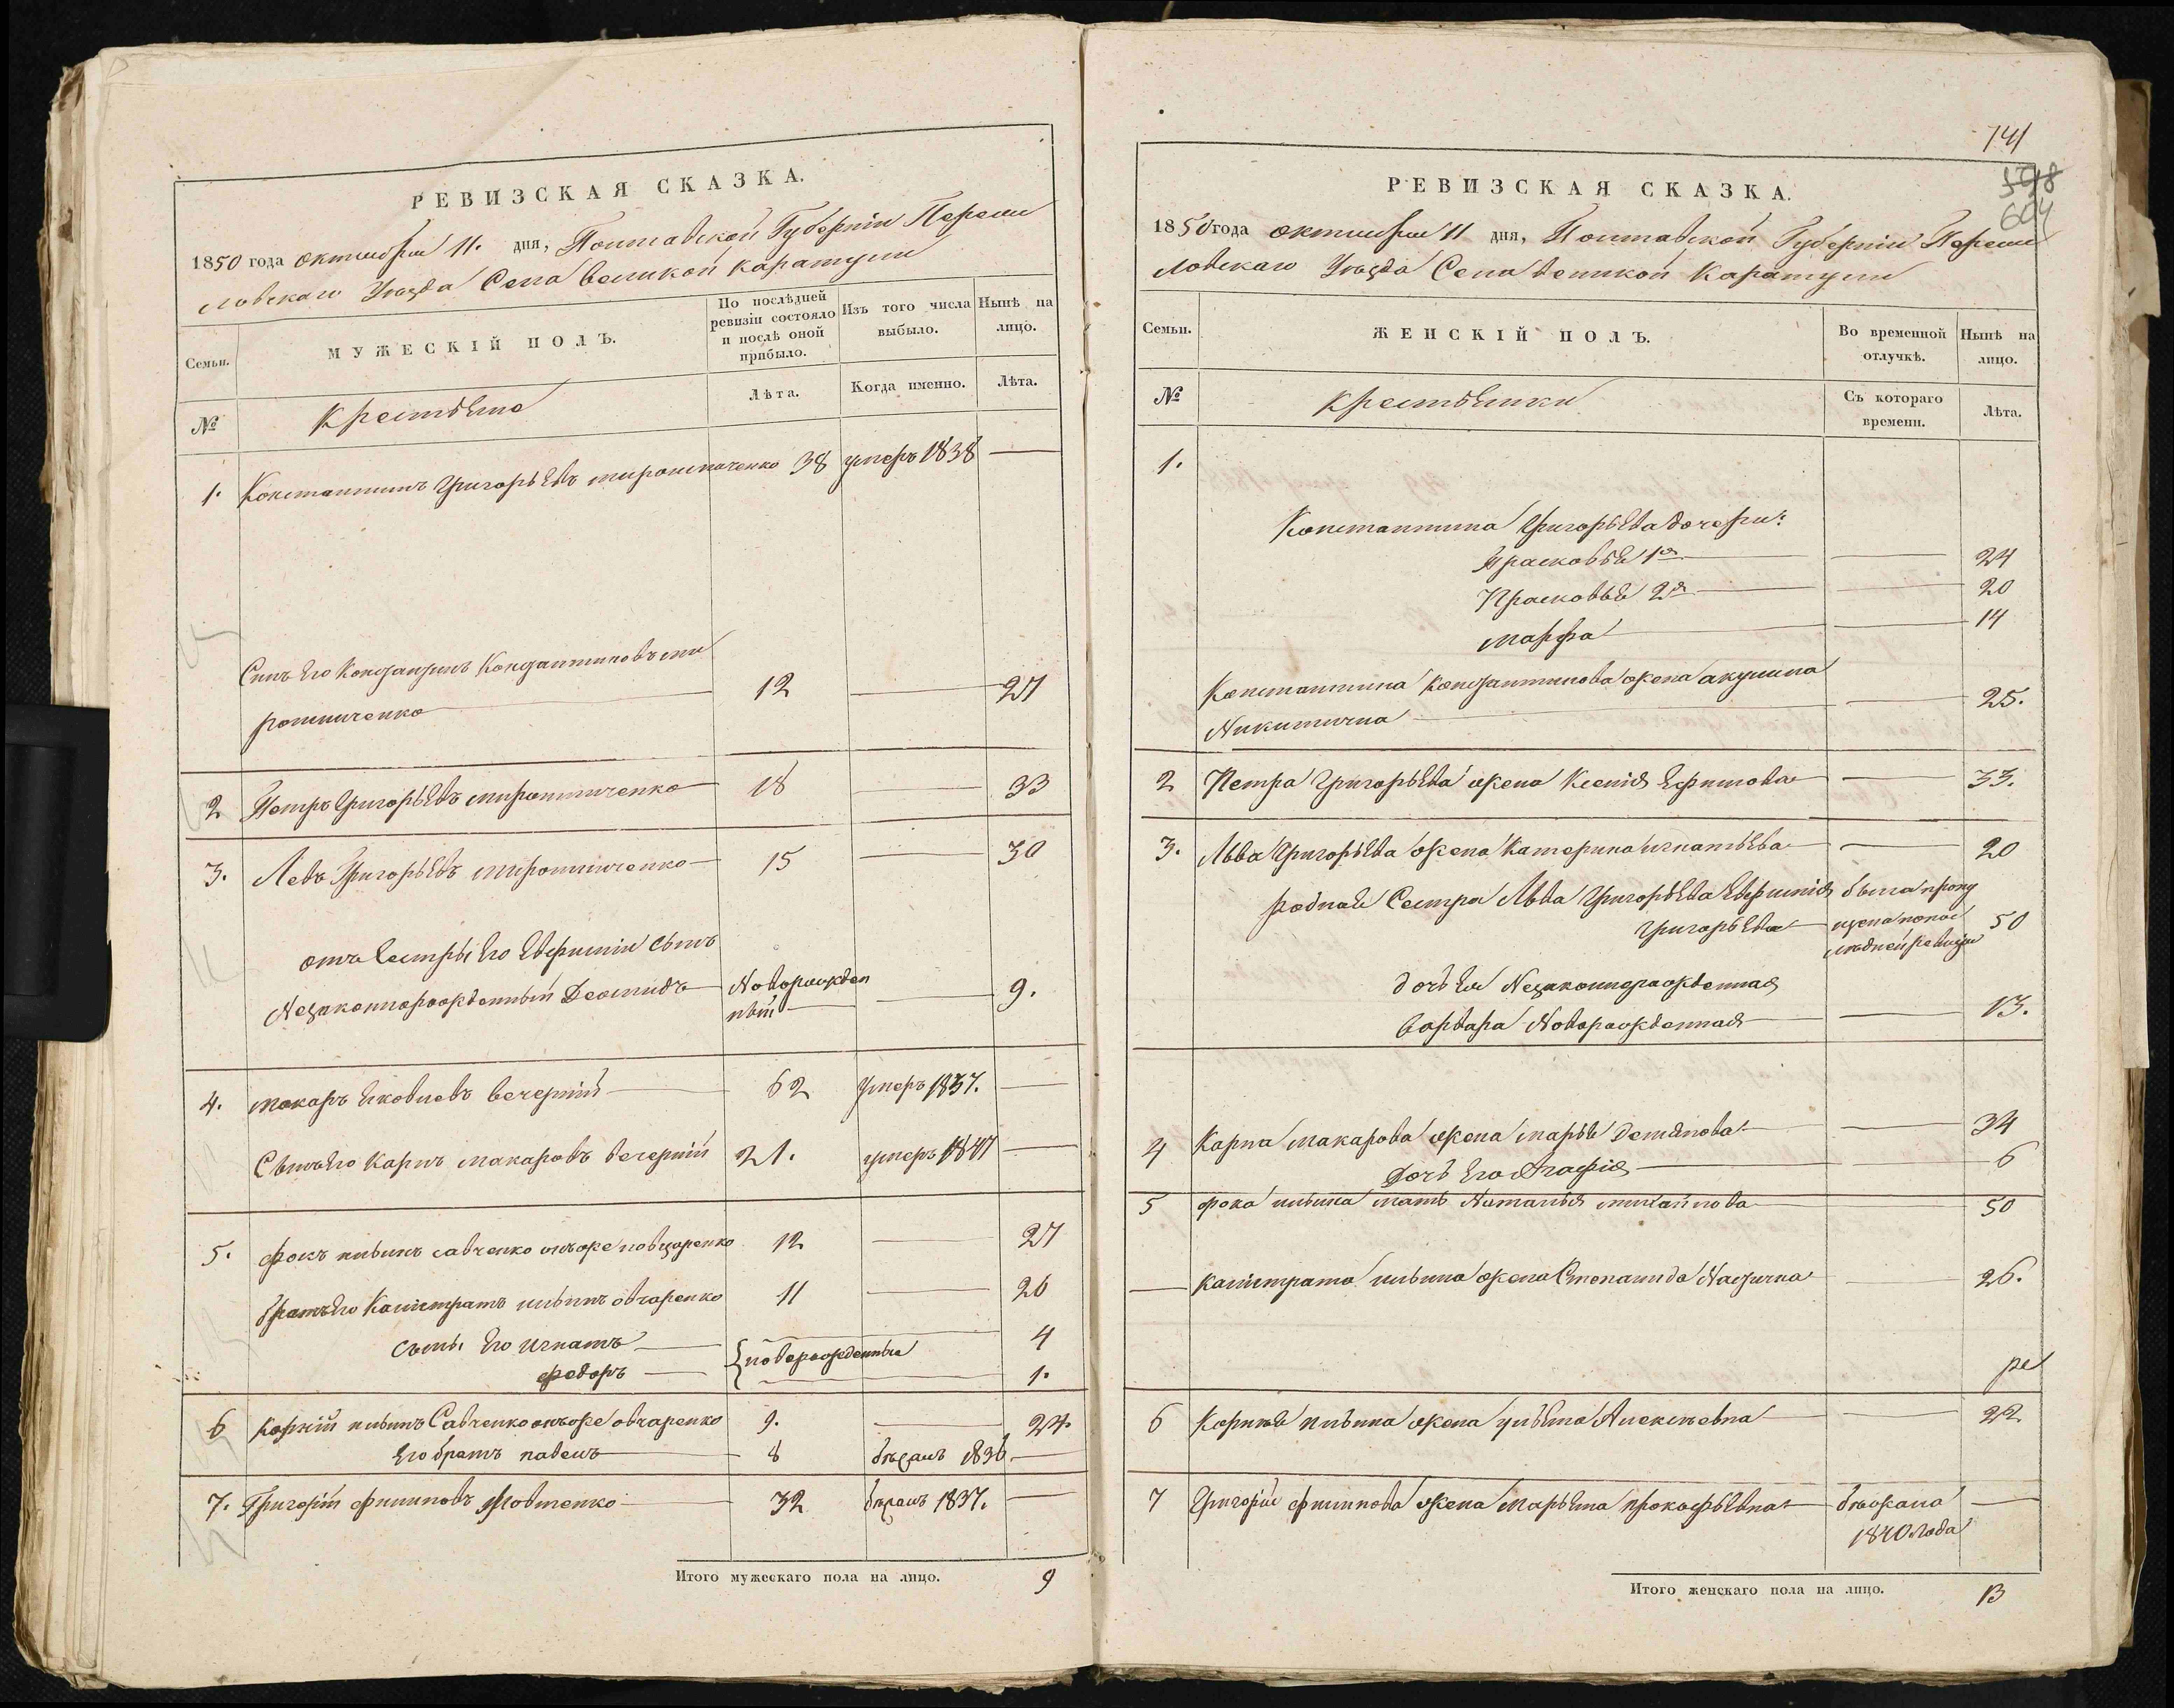 РЕВИЗСКАЯ СКАЗКА.
1850 года октября 11. дня, Полтавской Губерніи Переяс
ловскаго Уезда Села великой каратули
Семьи.
МУЖЕСКІЙ ПОЛЪ.
По послѣдней ревизіи состояло и послѣ оной прибыло.
Изъ того числа выбыло.
Нынѣ на лицо.
№
крестьяне
Лѣта.
Когда именно.
Лѣта.
1. Константинъ Григорьевъ мирошниченко 38 умеръ 1838 —
Сынъ его Константинъ Константиновъ ми
рошниченко 12 — 27
2 Петръ Григорьевъ мирошниченко 18 — 33
3. Левъ Григорьевъ мирошниченко 15 — 30
отъ Сестры его Евфимии сынъ
Незаконнорожденный Деомидъ Новорожден
ный — 9.
4. макаръ яковлевъ вечерній 62 умеръ 1837. —
Сынъ его карпъ макаровъ вечерній 21. умеръ 1847 —
5. фокъ ильинъ савченко онъже 12 — 27
братъ его Калистратъ ильинъ овчаренко 11 — 26
сыны его игнатъ — 4
новорожденные
федоръ — 1.
6 корній ильинъ Савченко онъже овчаренко 9. — 24.
его братъ павелъ 8 бежалъ 1836. —
7. Григорій филиповъ 32 бежалъ 1837. —
Итого мужескаго пола на лицо. 9
741
598
604
РЕВИЗСКАЯ СКАЗКА.
1850 года октября 11 дня, Полтавской Губерніи Переяс
ловскаго Уезда Села великой Каратули
Семьи.
ЖЕНСКІЙ ПОЛЪ.
Во временной отлучкѣ.
Нынѣ на лицо.
№
крестьянки
Съ котораго времени.
Лѣта.
1.
Константина Григорьева дочери:
Прасковья 1я — 24
Прасковья 2я — 20
марфа — 14
Константина Константинова жена акулина
Никитична — 25.
2 Петра Григорьева жена Ксенія Ефимова — 33.
3. Льва Григорьева жена Катерина игнатьева — 20
родная Сестра Льва Григорьева Евфимія была пропу
Григорьева щена попос 50
ледней ревизіи
дочь ея Незаконнорожденная
варвара Новорожденная — 13.
4 Карпа макарова жена марья Демянова — 34
Дочь его Агафія — 6
5 фока ильина мать Наталья михайлова 50
— калистрата ильина жена Степанида — 26.
ре
6 Корнія ильина жена ульяна Алексеевна — 22
7 Григорія филипова жена Марьяна прокофьевна бежала —
1840 года
Итого женскаго пола на лицо. 13